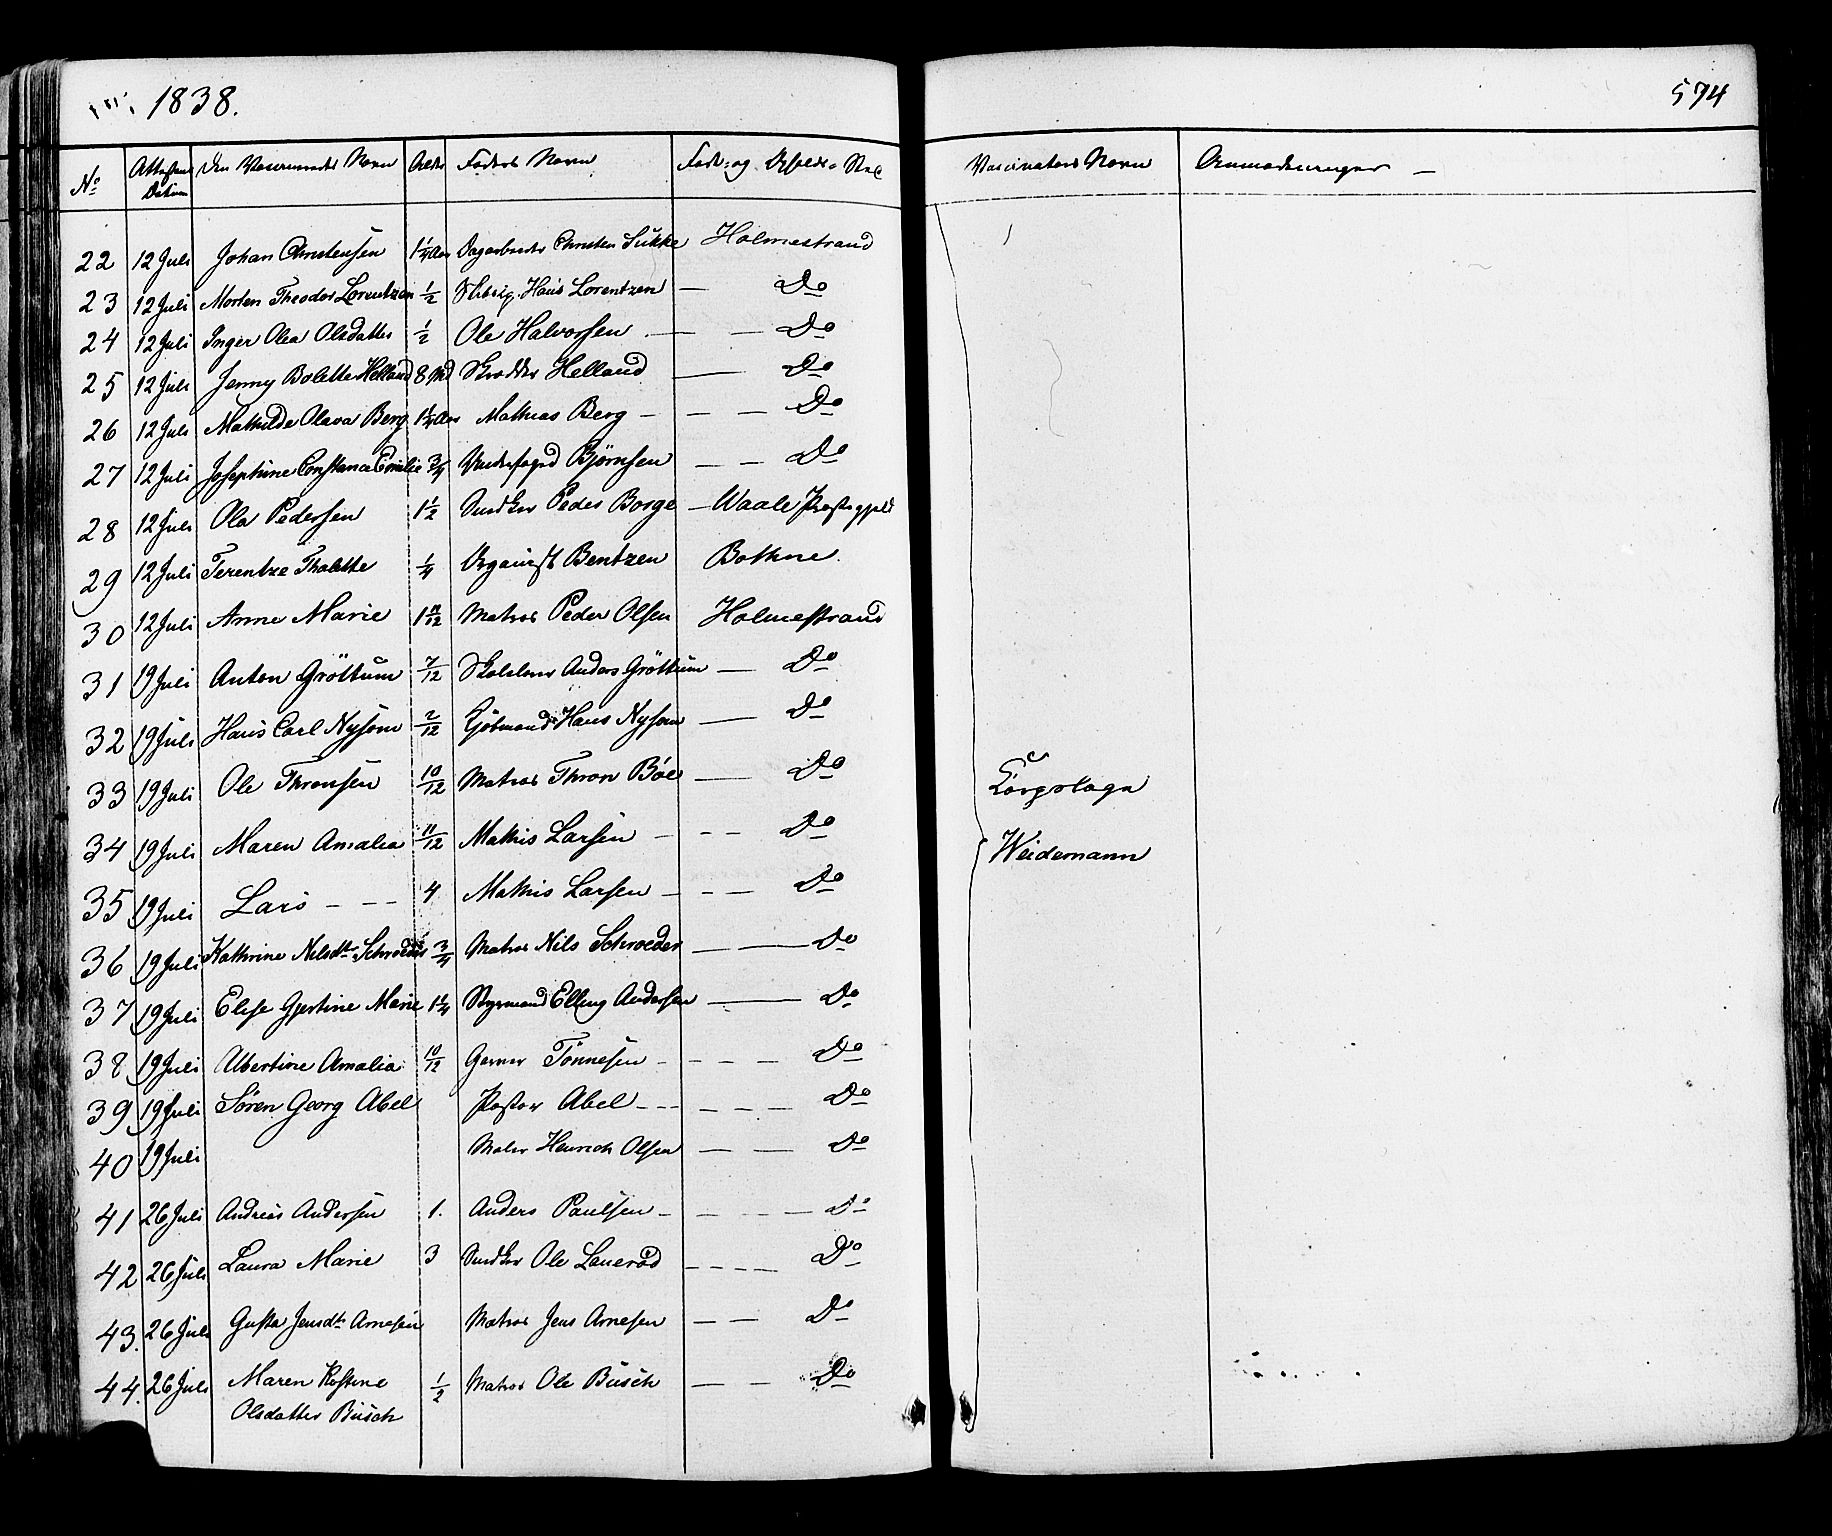 1838.
574
No Attestens Datum Den Vaccineredes Navn Alder Faders Navn Føde- og Opholds-Sted Vaccinateurs Navn Anmærkninger
22 12 Juli Johan Christensen 1¼ Aar Dagarbeider Christen Sukke Holmestrand
23 12 Juli Morten Theodor Lorentzen ½ Hans Lorentzen — Do
24 12 Juli Inger Olea Olsdatter ½ Ole Halvorsen — Do
25 12 Juli Jenny Bolette Helland 8 Md Skrædder Helland — Do
26 12 Juli Mathilde Olava Berg 1¼ Aar Mathias Berg — Do
27 12 Juli Josephine Constance Emilie ¾ Underfoged Björnsen — Do
28 12 Juli Ola Pedersen 1½ Snedker Peder Borge — Waale Præstegjeld
29 12 Juli Terentze Thalette ¼ Organist Bentzen Bothne.
30 12 Juli Anne Marie 1 11/12 Matros Peder Olsen Holmestrand
31 19 Juli Anton Gröttum 7/12 Skolelærer Anders Gröttum — Do
32 19 Juli Hans Carl Nysom 2/12 Kjöbmand Hans Nysom — Do
33 19 Juli Ole Thronsen 10/12 Matros Thron Böe — Do
Corpslæge
34 19 Juli Maren Amalia 11/12 Mathis Larsen — Do
Weidemann
35 19 Juli Lars — 4 Mathis Larsen — Do
36 19 Juli Kathrine Nilsdtr Schrøder ¾ Matros Nils Schroeder — Do
37 19 Juli Elise Gjertine Marie 1¼ Styrmand Elling Andersen — Do
38 19 Juli Albertine Amalia 10/12 Garver Tönnesen — Do
39 19 Juli Sören Georg Abel Pastor Abel — Do
40 19 Juli Maler Henrich Olsen — Do
41 26 Juli Andreas Andersen 1. Anders Paulsen — Do
42 26 Juli Laura Marie 3 Snedker Ole Laueröd — Do
43. 26 Juli Gusta Jensdtr Arnesen Matros Jens Arnesen — Do
44. 26 Juli Maren Kostine ½ Matros Ole Busch — Do
Olsdatter Busch